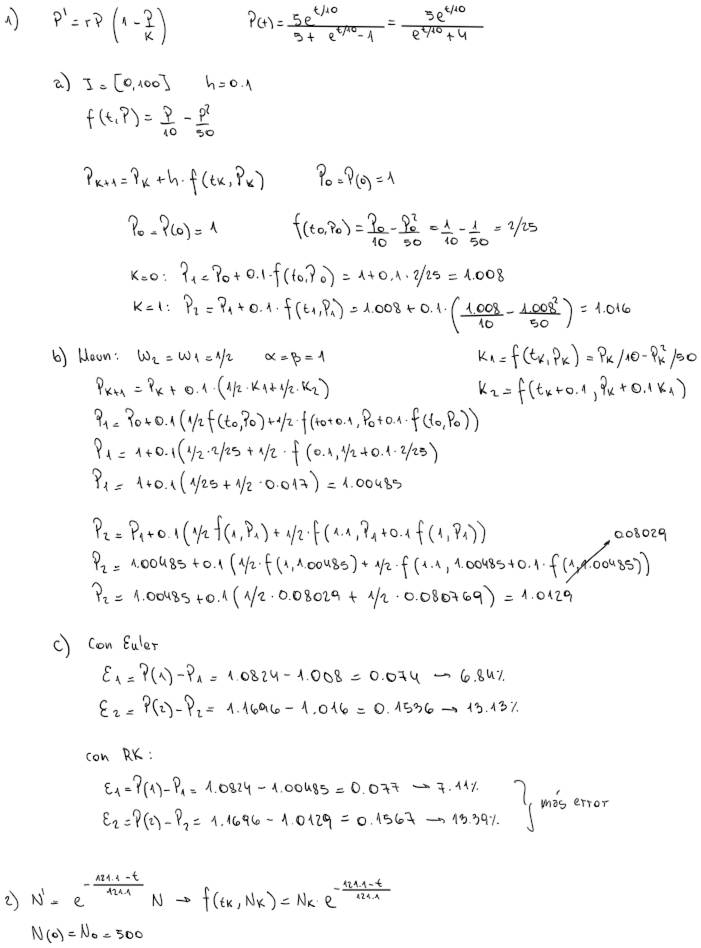 1) P' = rP (1 - P/K)    P(t) = 5e^{t/10} / (5 + e^{t/10} - 1) = 5e^{t/10} / (e^{t/10} + 4)
a) I = [0,100]    h = 0.1
f(t,P) = P/10 - P²/50
P_{K+1} = P_K + h · f(t_K, P_K)    P_0 = P(0) = 1
P_0 = P(0) = 1    f(t_0,P_0) = P_0/10 - P_0²/50 = 1/10 - 1/50 = 2/25
K=0: P_1 = P_0 + 0.1 · f(t_0,P_0) = 1 + 0,1 · 2/25 = 1.008
K=1: P_2 = P_1 + 0.1 · f(t_1,P_1) = 1.008 + 0.1 · (1.008/10 - 1.008²/50) = 1.016
b) Heun: W_2 = W_1 = 1/2    α = β = 1    K_1 = f(t_K, P_K) = P_K/10 - P_K²/50
P_{K+1} = P_K + 0.1 · (1/2 · K_1 + 1/2 · K_2)    K_2 = f(t_K + 0.1, P_K + 0.1 K_1)
P_1 = P_0 + 0.1 (1/2 f(t_0,P_0) + 1/2 · f(t_0 + 0.1, P_0 + 0.1 · f(t_0,P_0)))
P_1 = 1 + 0.1 (1/2 · 2/25 + 1/2 · f(0.1, 1/2 + 0.1 · 2/25)
P_1 = 1 + 0.1 (1/25 + 1/2 · 0.017) = 1.00485
P_2 = P_1 + 0.1 (1/2 f(1,P_1) + 1/2 · f(1.1, P_1 + 0.1 f(1,P_1))    0.08029
P_2 = 1.00485 + 0.1 (1/2 · f(1,1.00485) + 1/2 · f(1.1, 1.00485 + 0.1 · f(1,1.00485))
P_2 = 1.00485 + 0.1 (1/2 · 0.08029 + 1/2 · 0.080769) = 1.0129
c) Con Euler
ε_1 = P(1) - P_1 = 1.0824 - 1.008 = 0.074 → 6.84%
ε_2 = P(2) - P_2 = 1.1696 - 1.016 = 0.1536 → 13.13%
con RK:
ε_1 = P(1) - P_1 = 1.0824 - 1.00485 = 0.077 → 7.11%
ε_2 = P(2) - P_2 = 1.1696 - 1.0129 = 0.1567 → 13.39%    } más error
2) N' = e^{-(121.1 - t)/121.1} N → f(t_K, N_K) = N_K · e^{-(121.1 - t)/121.1}
N(0) = N_0 = 500